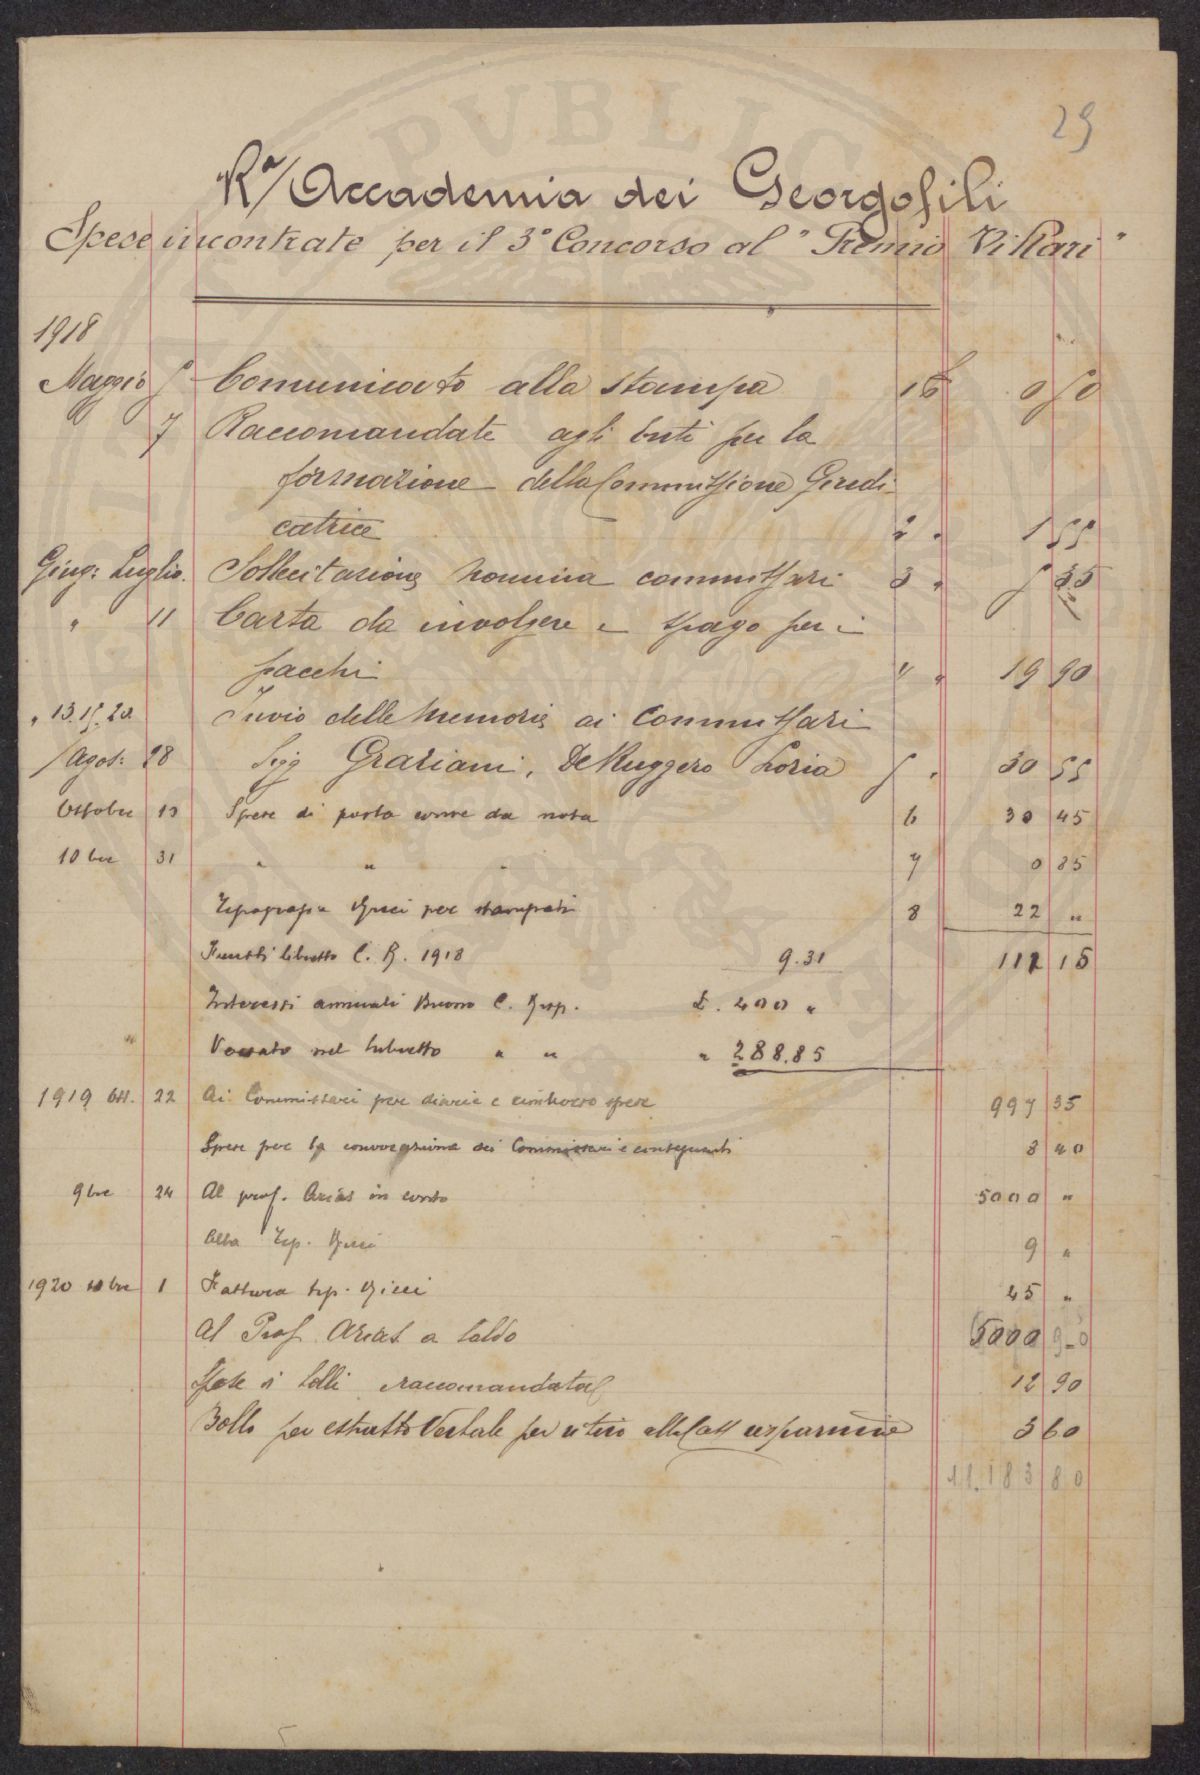 29
Rª Accademia dei Georgofili
Spese incontrate per il 3° Concorso al "Premio Villari"
1918
Maggio 5 Comunicato alla stampa 1 £ 0 50
7 Raccomandate agli Enti per la
formazione della Commissione Giudi-
catrice 2 " 1 55
Giug: Luglio. Sollecitazione nomina commissari 3 " 5 35
" 11 Carta da involgere e spago per i
pacchi 4 " 19 90
" 13. 15. 20. Invio delle Memorie ai Commissari
Agos: 28 Sigg Graziani, De Ruggero Loria 5 " 30 55
Ottobre 13 Spese di posta come da nota 6 30 45
10bre 31 " " " 7 0 85
Tipografia Ricci per stampati 8 22 "
Frutti libretto C. R. 1918 9.31 111 15
Interessi annuali Buono C. Risp. £. 400 "
Versato nel libretto " " " 288.85
1919 Ott. 22 Ai Commissari per diarie e rimborso spese 997 35
Spese per la convocazione dei Commissari e conseguenti 8 40
9bre 24 Al prof. Arias in conto 5000 "
Alla Tip. Ricci 9 "
1920 10bre 1 Fattura tip. Ricci 45 "
Al Prof. Arias a saldo 5000
raccomandata 12 90
Bollo per estratto Verbale per ritiro alla Cassa risparmio 3 60
11.183 80